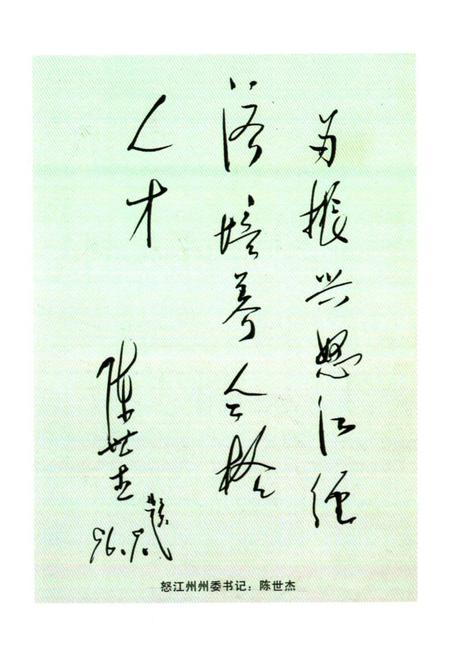 为振兴怒江经
济培养合格
人才
陈世杰
96.9.
怒江州州委书记：陈世杰